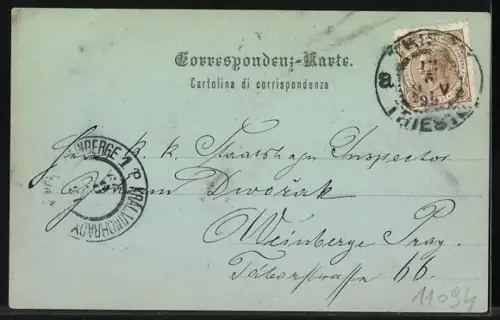 Correspondenz-Karte.
Cartolina di corrispondenza
TRIESTE
a
V
TRIESTE
WEINBERGE 1 * KRÁL. VINOHRADY
Herrn k. k. Staatsbahn Inspector
Dvořák
Weinberge Prag.
Táborstrasse 66.
11094